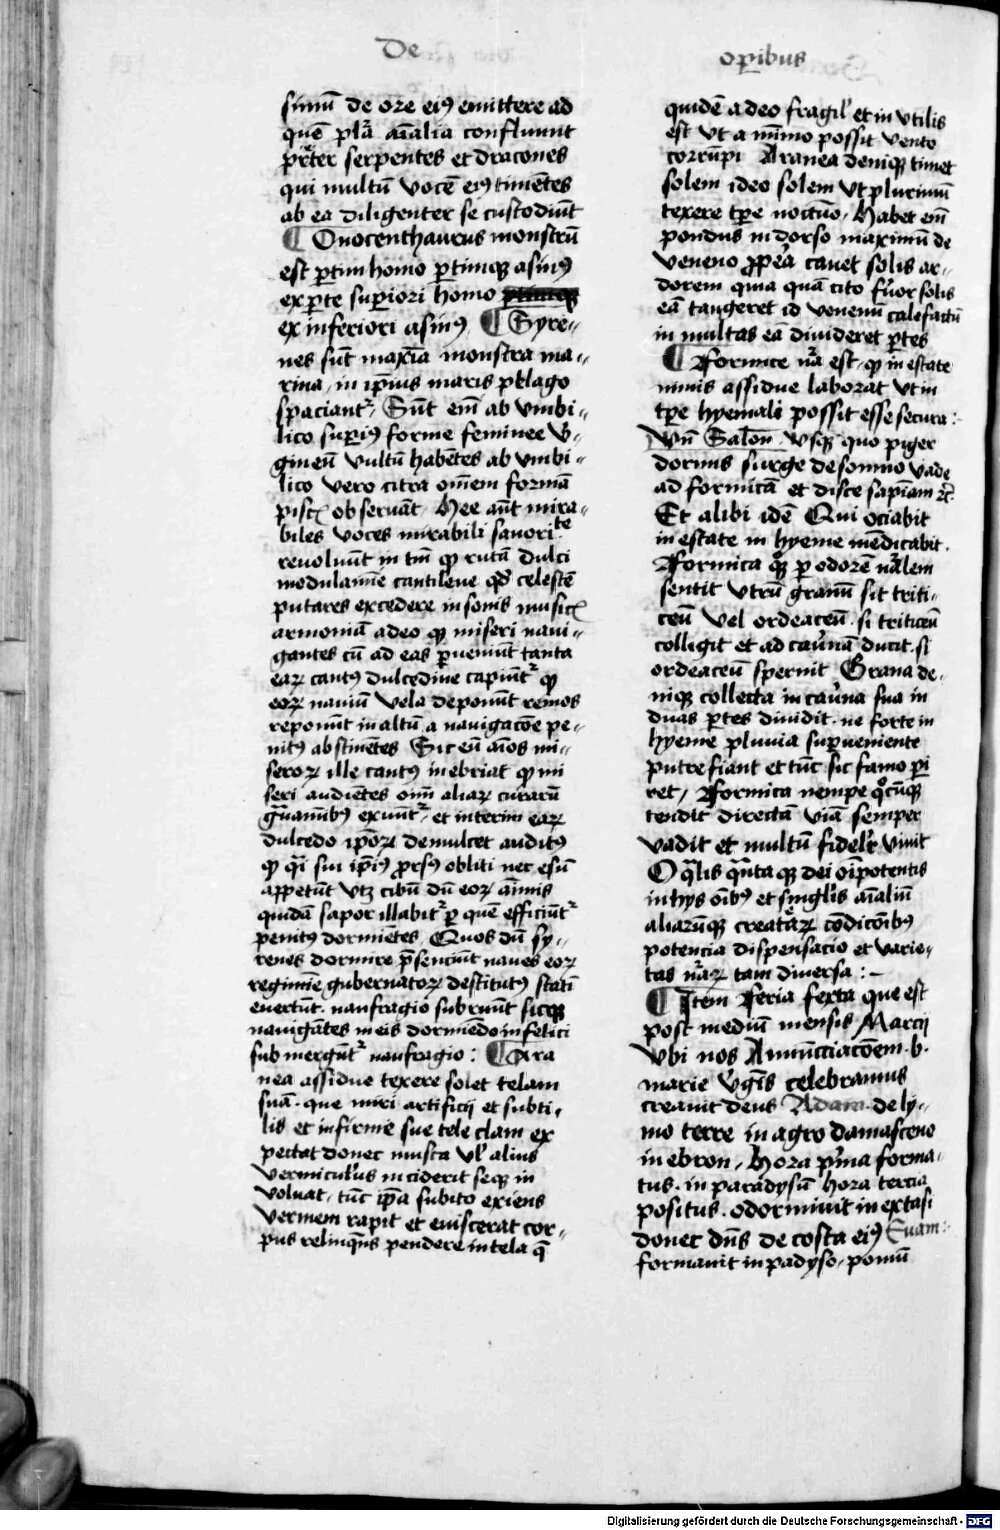 De
oꝑibus
simū de ore eiꝰ emittere ad
quē pľa aīalia confluunt
preter serpentes et dracones
qui multū vocē eiꝰ timētes
ab ea diligenter se custodiūt
¶ Onocenthaurus monstrū
est ꝑtim homo ꝑtimqꝫ asinꝰ
ex ꝑte suꝑiori homo
ex inferiori asinꝰ ¶ Syre-
nes sūt maxīa monstra ma-
rina, in ipīus maris pelago
spaciantr̉, Sūt em̄ ab vmbi-
lico suꝑiꝰ forme feminee v̉-
gineū vultū habētes ab vmbi-
lico vero citra om̄em formā
piscꝭ obseruāt, Hee aūt mira-
biles voces mirabili sauoritate
reuoluūt in tm̄ qꝫ rutā dulci
modulamīe cantilene qd̉ celestē
putares excedere in sonis musicꝭ
armoniā adeo qꝫ miseri naui-
gantes cū ad eas ꝑueniūt tanta
eaꝝ cantꝰ dulcedine capiūtr̉ qꝫ
eoꝝ nauiū vela deponūt remos
reponūt in altū a nauigacōe pe-
nitꝰ abstinētes Sic em̄ aīos mi-
seroꝝ ille cantꝰ inebriat qꝫ mi
seri audiētes om̄i aliaꝝ curarū
grauaminibꝰ exuūtr̉ et interim eaꝝ
dulcedo ipōꝝ demulcet auditꝰ
qꝫ qͣi sui ipīꝰ ꝓrsꝰ obliti nec esū
appetūt vtꝫ cibū dū eoꝝ aīmis
quidā sapor illabitr̉ ꝑ quē efficiūtr̉
penitꝰ dormiētes, Quos dū sy-
renes dormire p̄senciūt naues eoꝝ
regimīe gubernatoꝝ destitutꝰ statī
euertūt, naufragio subruūt sicqꝫ
nauigātes in eis dormiēdo infelici
submergūtr̉ naufragio : ¶ Ara
nea assidue texere solet telam
suā, que miri artificij et subti-
lis et infirmie sue tele clam ex
pectat donec musca vl̉ alius
vermiculus inciderit seqꝫ in
voluat, tūc ip̄a subito exiens
vermem rapit et euiscerat cor-
pus relinquēs pendere in tela q̄
quidē adeo fragil̉ et in vtilis
est vt a mīmo possit vento
corrūpi Aranea deniqꝫ timet
solem ideo solem vt plurimū
texere tꝑe noctuo, Habet em̄
pondus in dorso maximū de
veneno ꝓpea cauet solis ar-
dorem quia quā cito feruor solis
eā tangeret id venenū calefactū
in multas eā diuideret ꝑtes
¶ Formice nͣa est, qꝫ in estate
nimis assidue laborat vt in
tꝑe hyemali possit esse secura :
Vn̄ Salōn vsqꝫ quo piger
dormis surge de somno vade
ad formicā et disce sapīam ꝛc̄.
Et alibi idē Qui ociabit
in estate in hyeme mēdicabit.
Formica qͦqꝫ ꝑ odorē nͣalem
sentit vtrū granū sit triti-
ceū vel ordeaceū, si triticeū
colligit et ad cau̓nā ducit, si
ordeaceū spernit Grana de-
niqꝫ collecta in cau̓na sua in
duas ꝑtes diuidit, ne forte in
hyeme pluuia suꝑueniente
putrefiant et tūc sic famo ꝑi
ret, Formica nempe qͦcūqꝫ
tendit directā viā semper
vadit et multū fidelr̉ viuit
O qͣlis qͣnta qꝫ dei oīpotentis
in hys oībꝰ et singlis aīaliū
aliarūqꝫ creatͣaꝝ cōdicōibꝰ
potencia dispensacio et varie-
tas nͣaꝝ tam diuersa : -
¶ Item Feria sexta que est
post mediū mensis Marcij
vbi nos Annūcciacōem b.
marie v̉gīs celebramus
creauit deus Adam de ly-
mo terre in agro damasceno
in ebron, Hora pͥma forma-
tus, in paradysū hora tercia
positus, odormiuit in extasi
donec dn̄s de costa eiꝰ Euam
formauit in padyso, pomū
Digitalisierung gefördert durch die Deutsche Forschungsgemeinschaft - DFG